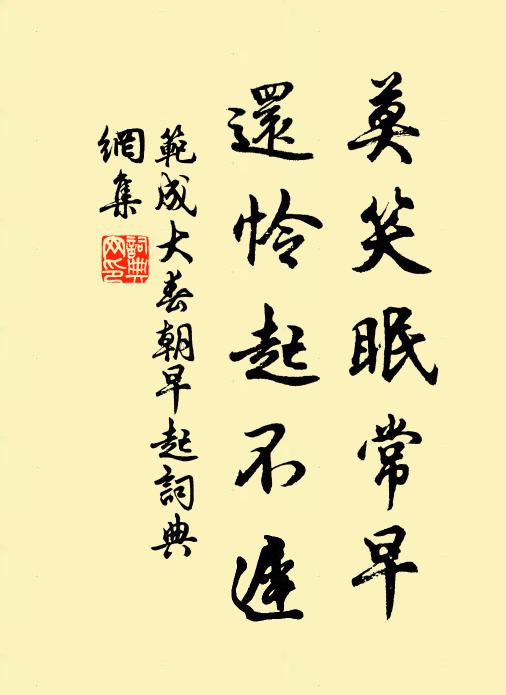 莫笑眠常早
還怜起不遲
範成大春朝早起詞典
網集
詞典
网印